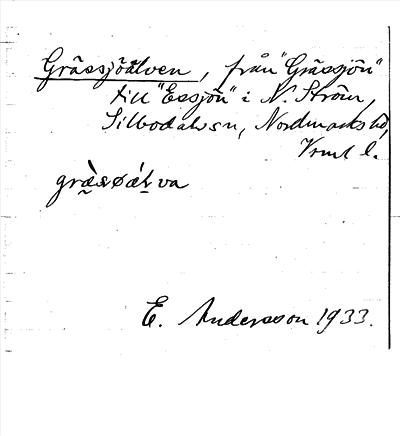 Grässjöälven, från "Grässjön"
till "Eesjön" i N. Ström,
Silbodals sn, Nordmarks hd,
Vrml l.
græ̀søǽlva
E. Andersson 1933.